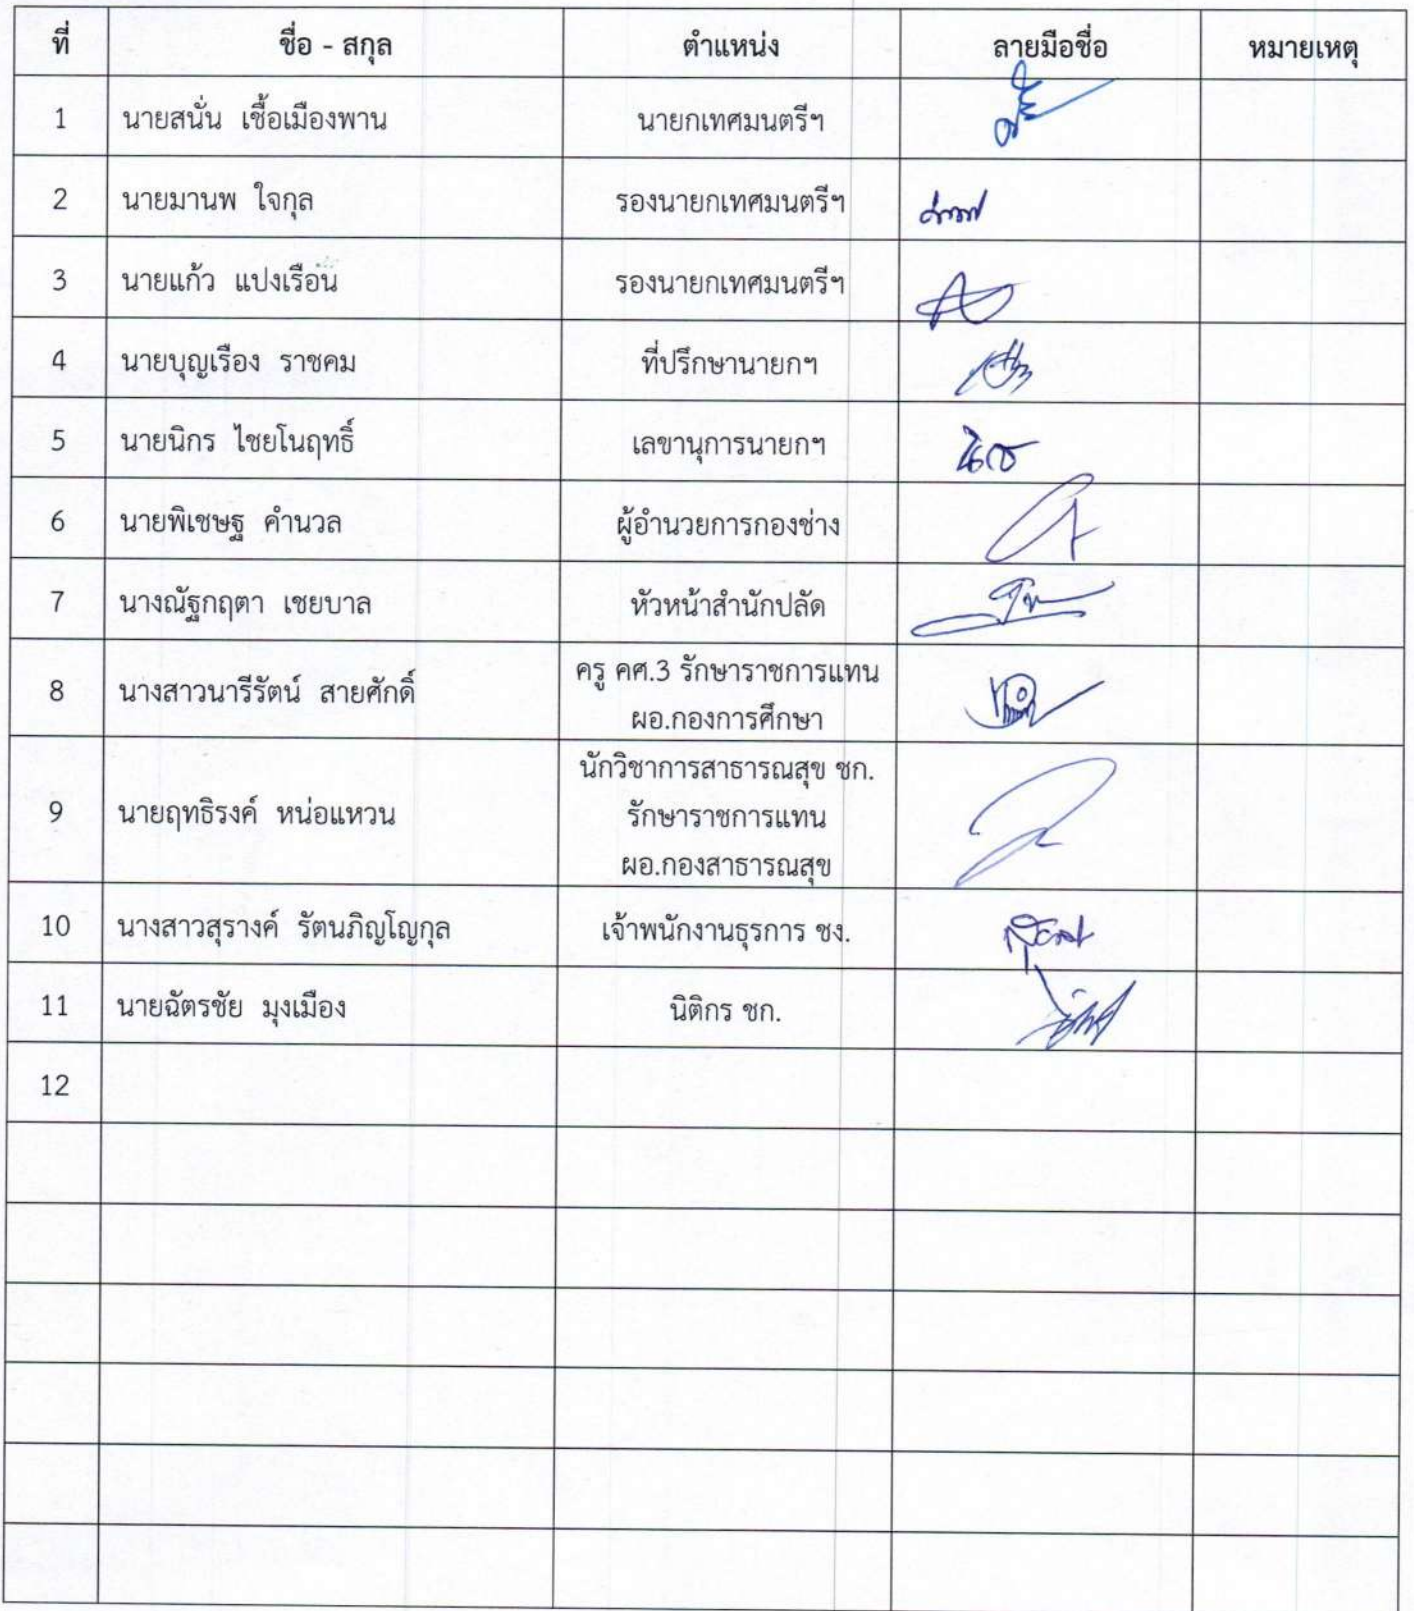 ที่ ชื่อ - สกุล ตำแหน่ง ลายมือชื่อ หมายเหตุ
1 นายสนั่น เชื้อเมืองพาน นายกเทศมนตรีฯ
2 นายมานพ ใจกุล รองนายกเทศมนตรีฯ
3 นายแก้ว แปงเรือน รองนายกเทศมนตรีฯ
4 นายบุญเรือง ราชคม ที่ปรึกษานายกฯ
5 นายนิกร ไชยโนฤทธิ์ เลขานุการนายกฯ
6 นายพิเชษฐ คำนวล ผู้อำนวยการกองช่าง
7 นางณัฐกฤตา เชยบาล หัวหน้าสำนักปลัด
8 นางสาวนารีรัตน์ สายศักดิ์ ครู คศ.3 รักษาราชการแทน
ผอ.กองการศึกษา
9 นายฤทธิรงค์ หน่อแหวน นักวิชาการสาธารณสุข ชก.
รักษาราชการแทน
ผอ.กองสาธารณสุข
10 นางสาวสุรางค์ รัตนภิญโญกุล เจ้าพนักงานธุรการ ชง.
11 นายฉัตรชัย มุงเมือง นิติกร ชก.
12